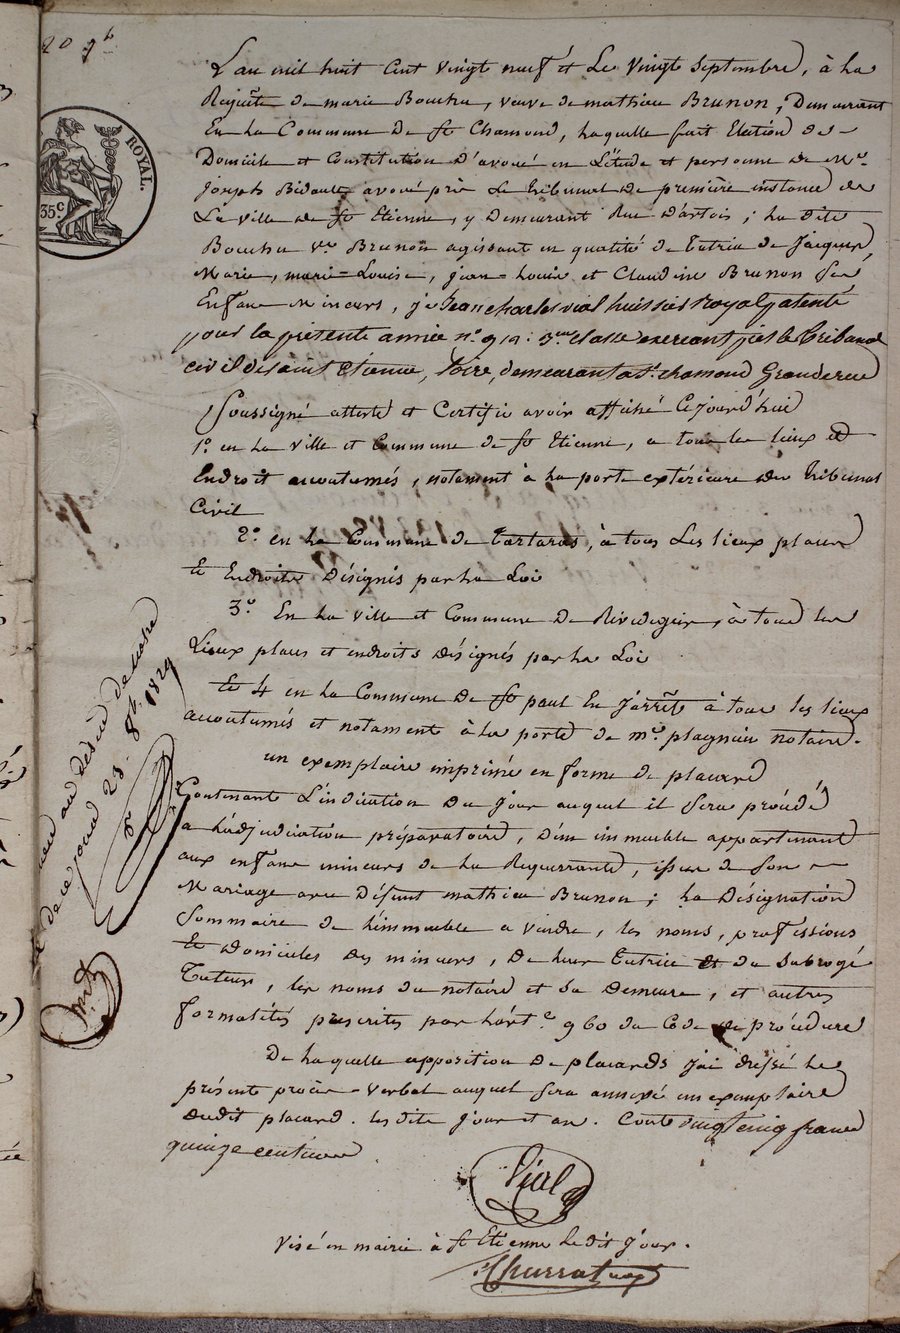 20 7b
ROYAL.
35c
L'an mil huit cent vingt neuf et Le vingt septembre, à La
Requête de marie Bouchu, veuve de mathieu Brunon, Demeurant
En La Commune De St Chamond, Laquelle fait Election de
Domicile et Constitution D'avoué en L'Etude et personne de Me.
joseph Bidault avoué près Le tribunal de première instance de
La ville de St Etienne, y Demeurant Rue D'artois ; La dite
Bouchu ve Brunon agissant en qualité de Tutrice de Jacques,
Marie, marie=Louise, jean=Louis et Claudine Brunon ses
Enfans Mineurs, je Jean charles vial huissier Royal patenté
pour la présente année no. 912 : 3me classe exerçant près le tribunal
civil de saint Etienne, Loire, demeurant à St. chamond Grande rue
Soussigné atteste et Certifie avoir affiché Cejourd'hui
1o. en La ville et Commune de St Etienne, a tous les lieux et
Endroit accoutumés, notament à La porte extérieure du Tribunal
Civil
2o. en La Commune de Tartaras, à tous Les lieux places
Et Endroits Désignés par La Loi
3o. En La ville et Commune De Rivedegier, à tous les
Lieux places et endroits désignés par La Loi
Et 4 en La Commune De St paul En Jarrêt à tous les lieux
accoutumés et notament à La porte de me. plagnieu notaire.
un exemplaire imprimé en forme de placard
Contenant L'indication du jour auquel il sera procédé
a L'adjudication préparatoire, D'un immeuble appartenant
aux enfans mineurs de La Requerrante, issus de son
Mariage avec Défunt mathieu Brunon ; La Désignation
Sommaire de L'immeuble a vendre, les noms, professions
Et domiciles Des mineurs, De leur Tutrice et du Subrogé
Tuteur, les noms du notaire et sa Demeure, et autres
formalités prescrites par L'art.e 960 du Code de procédure
De Laquelle apposition De placards j'ai dressé Le
présent procès-verbal auquel sera annexé un exemplaire
dudit placard. les dits jour et an. Coute vingt cinq francs
quinze centimes
Vial
Visé en mairie à St Etienne Le dit jour.